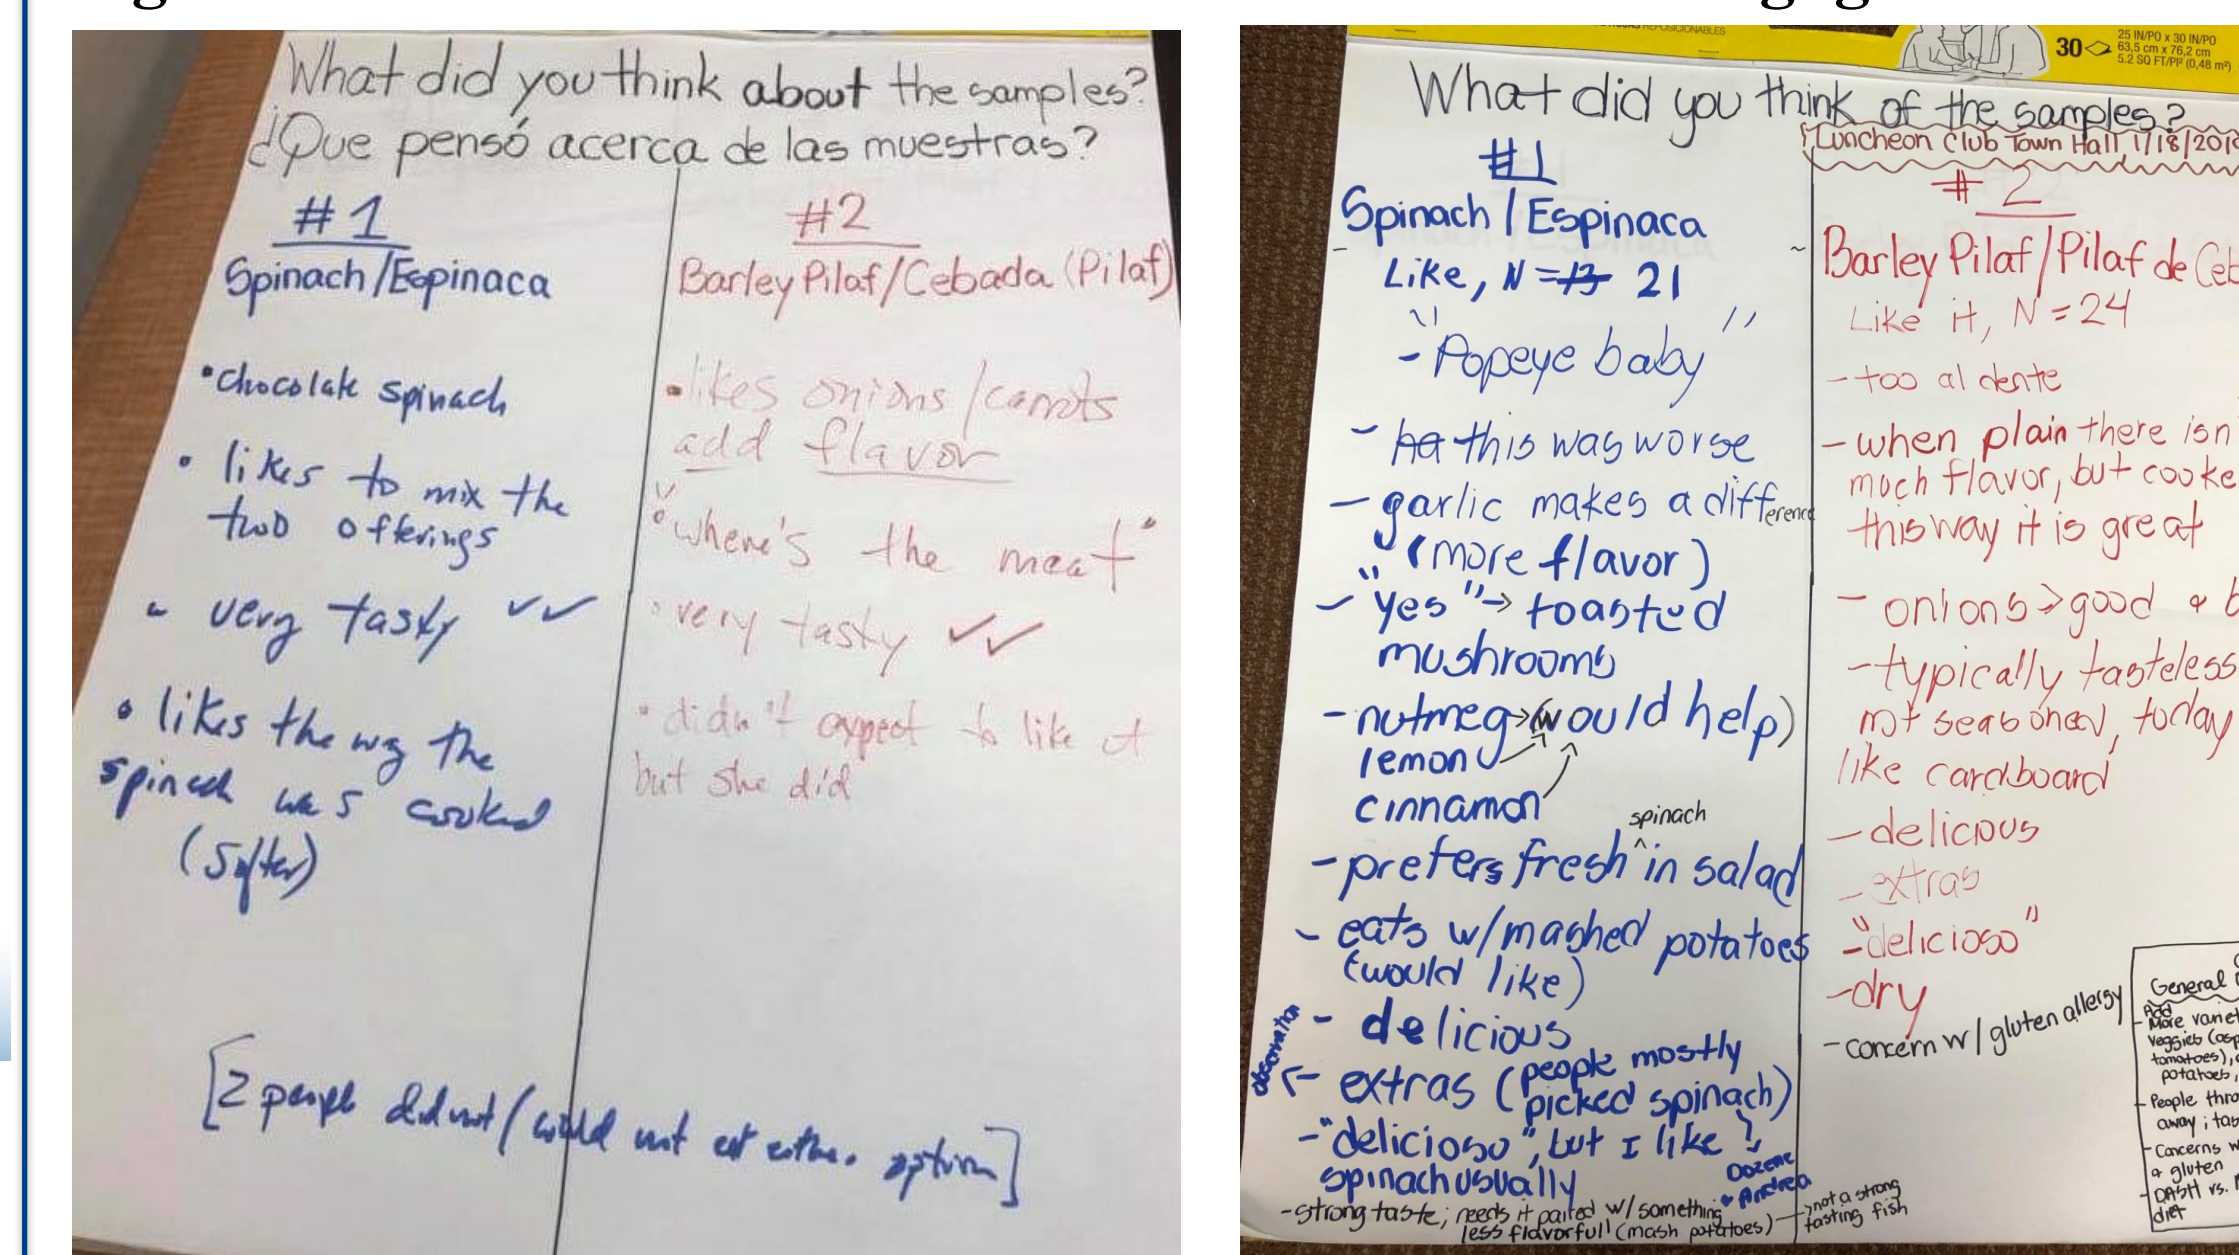 What did you think about the samples?
¿Que pensó acerca de las muestras?
#1
Spinach/Espinaca
•chocolate spinach
• likes to mix the
two offerings
• very tasty ✓✓
• likes the way the
spinach was cooked
(softer)
#2
Barley Pilaf/Cebada (Pilaf)
•likes onions/carrots
add flavor
"where's the meat"
• very tasty ✓✓
• didn't expect to like it
but she did
[2 people did not/could not eat either option]
30
25 IN/PO x 30 IN/PO
63,5 cm x 76,2 cm
5.2 SQ FT/PI² (0,48 m²)
What did you think of the samples?
Luncheon Club Town Hall 1/18/201
#1
Spinach/Espinaca
Like, N = 13 21
- "Popeye baby"
- ha this was worse
- garlic makes a difference
(more flavor)
- "yes" → toasted
mushrooms
- nutmeg → (would help)
lemon
cinnamon
- prefers fresh spinach in salad
- eats w/mashed potatoes
(would like)
- delicious
observation
- extras (people mostly
picked spinach)
- "delicioso", but I like
spinach usually
Andrea
- strong taste; needs it paired w/ something
less flavorful (mash potatoes)
→ not a strong
tasting fish
#2
Barley Pilaf/Pilaf de Ceb
Like it, N = 24
- too al dente
- when plain there isn
much flavor, but cooke
this way it is great
- onions → good + b
- typically tasteless
not seasoned, today
like cardboard
- delicious
- extras
- "delicioso"
- dry
- concern w/ gluten allergy
General
Add
- More variet
veggies (asp
tomatoes),
potatoes,
- People thro
away; tas
- Concerns w
+ gluten
- DASH vs.
diet